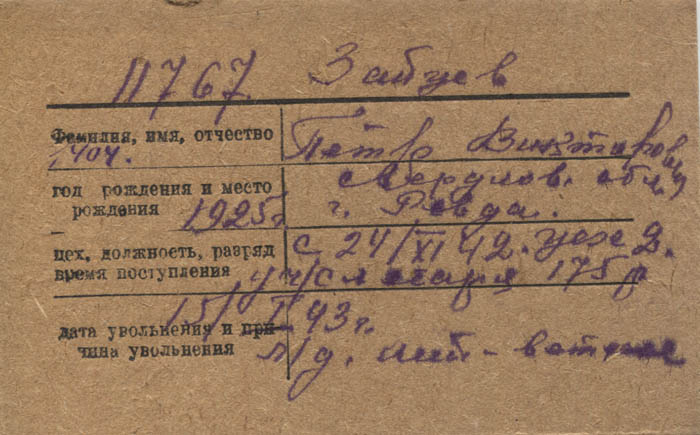 11767. Зайцев
Фамилия, имя, отчество Пётр Викторович
1404.
год рождения и место Свердлов. обл.
рождения 1925 г. г. Ревда.
цех, должность, разряд с 24/XI 42. цех 2.
время поступления уч/слесаря 175 р
15/I 43 г.
дата увольнения и при
чина увольнения п/д.